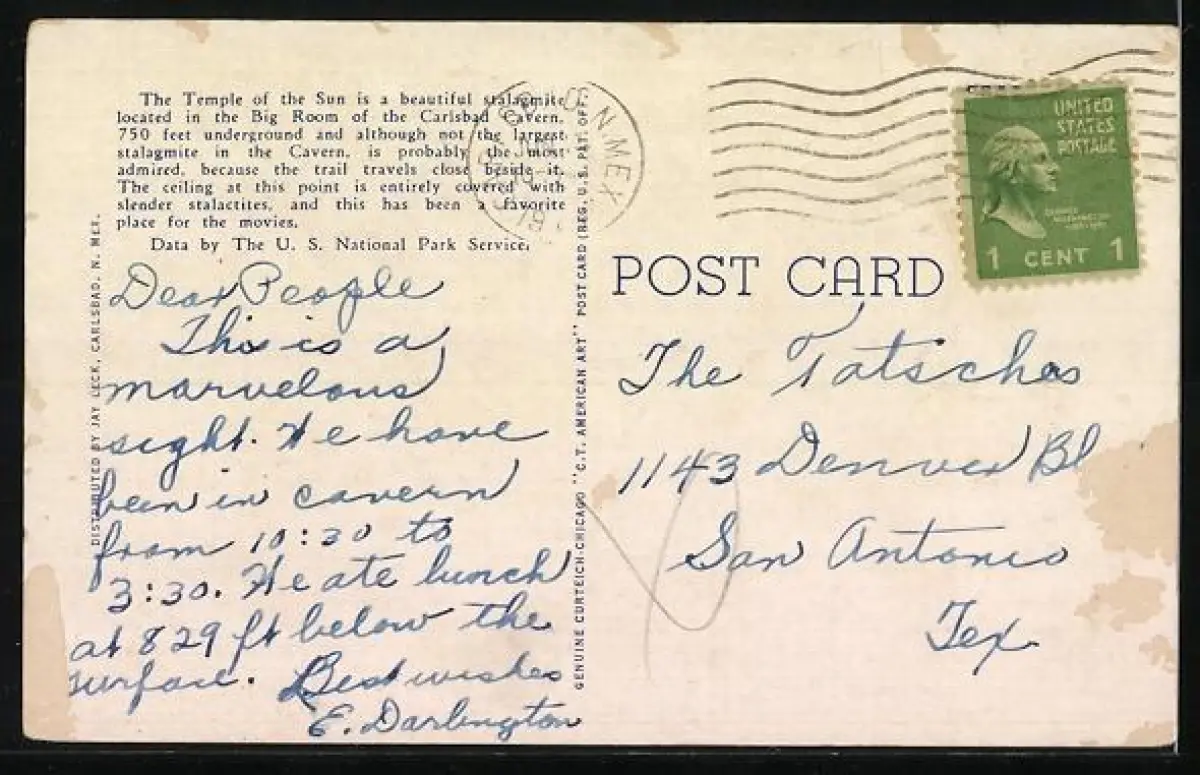 The Temple of the Sun is a beautiful stalagmite
located in the Big Room of the Carlsbad Cavern,
750 feet underground and although not the largest
stalagmite in the Cavern, is probably the most
admired, because the trail travels close beside it.
The ceiling at this point is entirely covered with
slender stalactites, and this has been a favorite
place for the movies.
Data by The U. S. National Park Service.
DISTRIBUTED BY JAY LECK, CARLSBAD, N. MEX.
Dear People
This is a
marvelous
sight. We have
been in cavern
from 10:30 to
3:30. We ate lunch
at 829 ft below the
surface. Best wishes
E. Darlington
GENUINE CURTEICH-CHICAGO "C.T. AMERICAN ART" POST CARD (REG. U.S. PAT. OFF.)
N. MEX.
UNITED
STATES
POSTAGE
GEORGE
WASHINGTON
1 CENT 1
POST CARD
The Tatsches
1143 Denver Bl
San Antonio
Tex